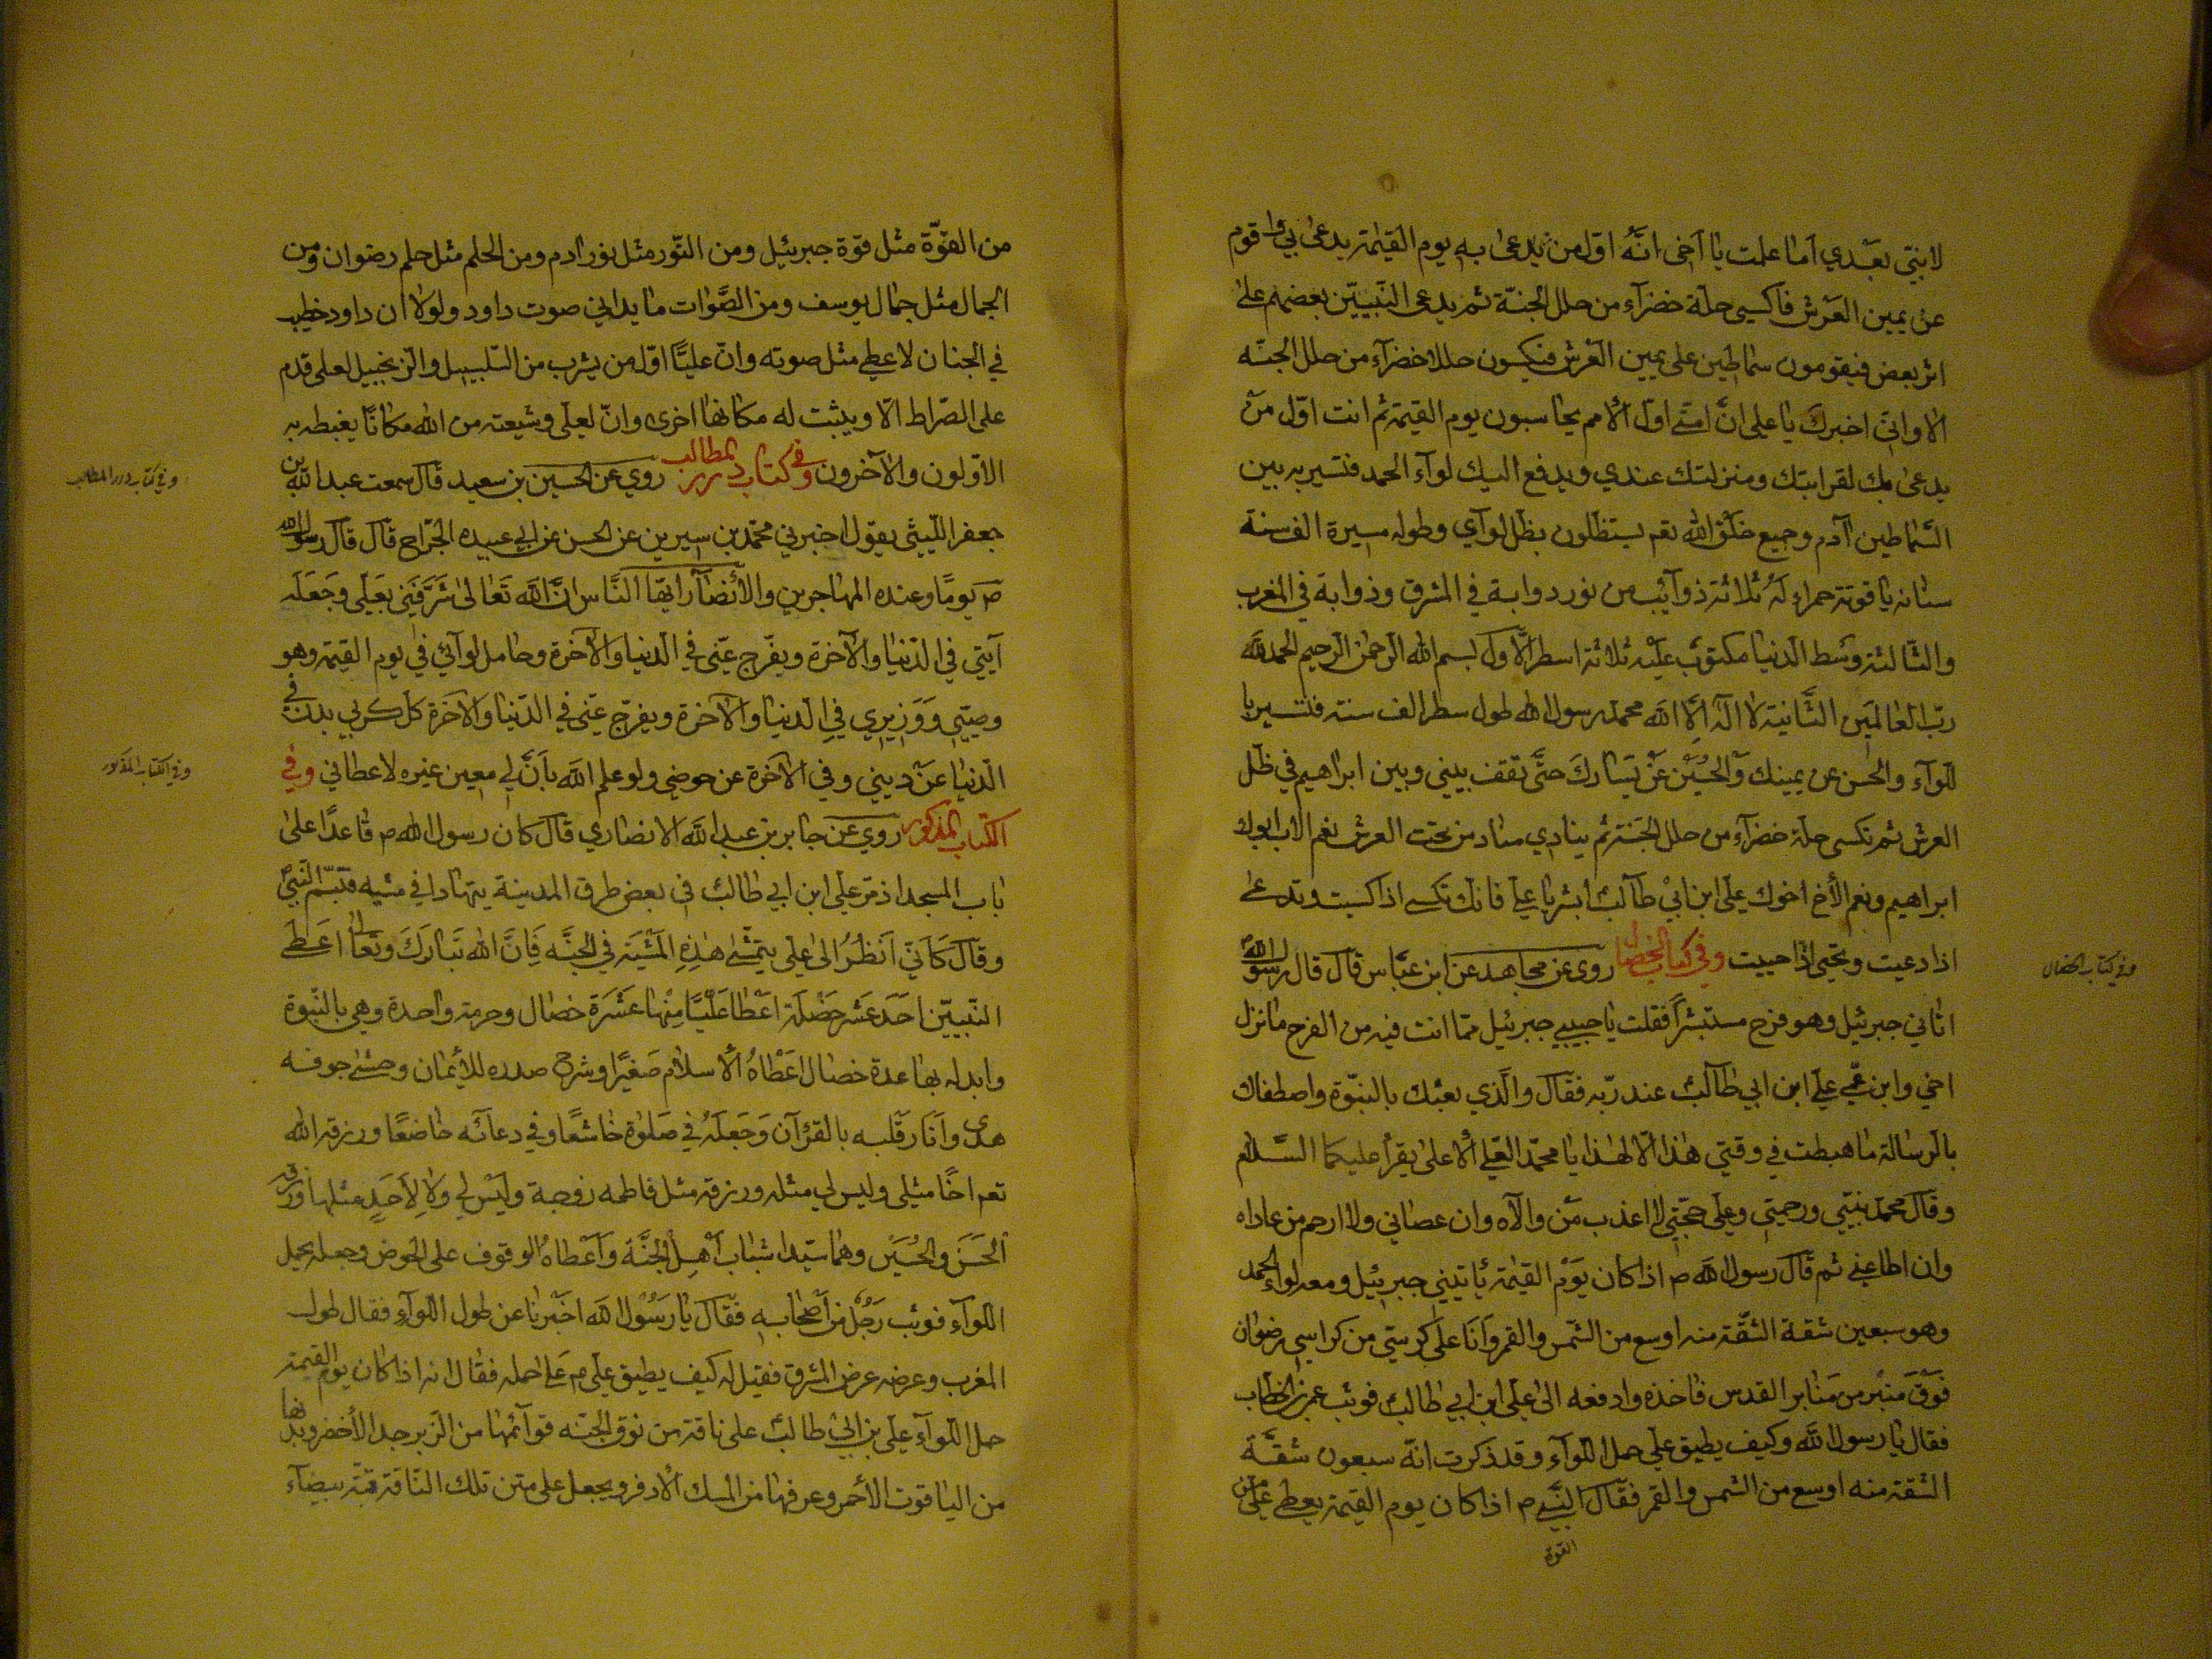 لا بنتي بعدي اما علمت يا اخي انه اول من يدعى به يوم القيمة يدعى بي واقوم
عن يمين العرش فاكسي حلة خضراء من حلل الجنة ثم يدعى النبيين بعضهم على
اثر بعض فيقومون سماطين على يمين العرش فيكسون حللا خضراء من حلل الجنة
الا واني اخبرك يا علي ان امتي اول الامم يحاسبون يوم القيمة ثم انت اول من
يدعى بك لقرابتك ومنزلتك عندي ويدفع اليك لواء الحمد فتسير به بين
السماطين آدم وجميع خلق الله تعم يستظلون بظل لوآي وطوله مسيرة الف سنة
سنانه ياقوتة حمراء له ثلاثة ذوآئب من نور دوابة في المشرق وذوابة في المغرب
والثالثة وسط الدنيا مكتوب عليه ثلاثة اسطر الاول بسم الله الرحمن الرحيم الحمد لله
رب العالمين الثانية لا اله الا الله محمد رسول الله طول سطر الف سنة فتسير با
للوآء والحسن عن يمينك والحسين عن يسارك حتى تقف بيني وبين ابراهيم في ظل
العرش ثم تكسى حلة خضرآء من حلل الجنة ثم ينادي مناد من تحت العرش نعم الاب ابوك
ابراهيم ونعم الأخ اخوك علي ابن ابي طالب ابشر يا علي فانك تكسى اذا كسيت وتدعى
اذا دعيت وتحيى اذا حييت وفي كتاب الخصال روى عن مجاهد عن ابن عباس قال قال رسول الله
اتاني جبرئيل وهو فرح مستبشرا فقلت يا حبيبي جبرئيل مما انت فيه من الفرح ما نزل
اخي وابن عمي علي ابن ابي طالب عند ربه فقال والذي بعثك بالنبوة واصطفاك
بالرسالة ما هبطت في وقتي هذا الا لهذا يا محمد العلي الاعلى يقرأ عليكما السلام
وقال محمد نبيي ورحمتي وعلي حجتي لا اعذب من والآه وان عصاني ولا ارحم من عاداه
وان اطاعني ثم قال رسول الله ص اذا كان يوم القيمة ياتيني جبرئيل ومعه لواء الحمد
وهو سبعين شقة الشقة منه اوسع من الشمس والقمر وانا على كرسي من كراسي رضوان
فوق منبر من منابر القدس فاخذه وادفعه الى علي ابن ابي طالب فوثب عمر بن الخطاب
فقال يا رسول الله وكيف يطيق علي حمل اللوآء وقد ذكرت انه سبعون شقة
الشقة منه اوسع من الشمس والقمر فقال النبي ص اذا كان يوم القيمة يعطي علي من
القوة
وفي كتاب الخصال
من القوة مثل قوة جبرئيل ومن النور مثل نور ادم ومن الحلم مثل حلم رضوان ومن
الجمال مثل جمال يوسف ومن الصوات ما يداني صوت داود ولولا ان داود خطيب
في الجنان لاعطي مثل صوته وان عليا اول من يشرب من السلسبيل والزنجبيل لعلي قدم
على الصراط الا ويثبت له مكانها اخرى وان لعلي وشيعته من الله مكانا يغبطه به
الاولون والآخرون وفي كتاب درر المطالب روي عن الحسين بن سعيد قال سمعت عبد الله بن
جعفر الليثي يقول اخبرني محمد بن سيرين عن الحسن عن ابي عبيده الجراح قال قال رسول الله
ص يوما وعنده المهاجرين والأنصار ايها الناس ان الله تعالى شرفني بعلي وجعله
آيتي في الدنيا والآخرة ويفرج عني في الدنيا والآخرة وحامل لوآئي في يوم القيمة وهو
وصيتي ووزيري في الدنيا والآخرة ويفرج عني في الدنيا والآخرة كل كربي يذب في
الدنيا عن ديني وفي الآخرة عن حوضي ولو علم الله بان لي معين غيره لاعطاني وفي
الكتاب المذكور روي عن جابر بن عبد الله الانصاري قال كان رسول الله ص قاعدا على
باب المسجد اذ مر علي ابن ابي طالب في بعض طرق المدينة يتهادا في مشيه فتبسم النبي ص
وقال كاني انظر الى علي يتمشى هذه المشية في الجنه فان الله تبارك وتعالى اعطى
النبيين احد عشر خصلة اعطا عليا منها عشرة خصال وحرمة واحدة وهي بالنبوة
وابدله بها عدة خصال اعطاه الاسلام صغيرا وشرح صدره للايمان وحشى جوفه
هدى وانار قلبه بالقرآن وجعله في صلوة خاشعا وفي دعائه خاضعا ورزقه الله
تعم اخا مثلي وليس لي مثله ورزقه مثل فاطمه زوجة وليس لي ولا لاحد مثلها ورزقه
الحسن والحسين وهما سيدا شباب اهل الجنة واعطاه الوقوف على الحوض وجعله يحمل
اللوآء فوثب رجل من اصحابه فقال يا رسول الله اخبرنا عن طول اللوآء فقال طوله
المغرب وعرضه عرض المشرق فقيل له كيف يطيق علي م على حمله فقال انه اذا كان يوم القيمة
حمل اللوآء علي بن ابي طالب على ناقة من نوق الجنه قوآئمها من الزبرجد الأخضر وبدنها
من الياقوت الأحمر وعرفها من المسك الاذفر ويجعل على متن تلك الناقة قبة بيضآء
وفي كتاب درر المطالب
وفي الكتاب المذكور